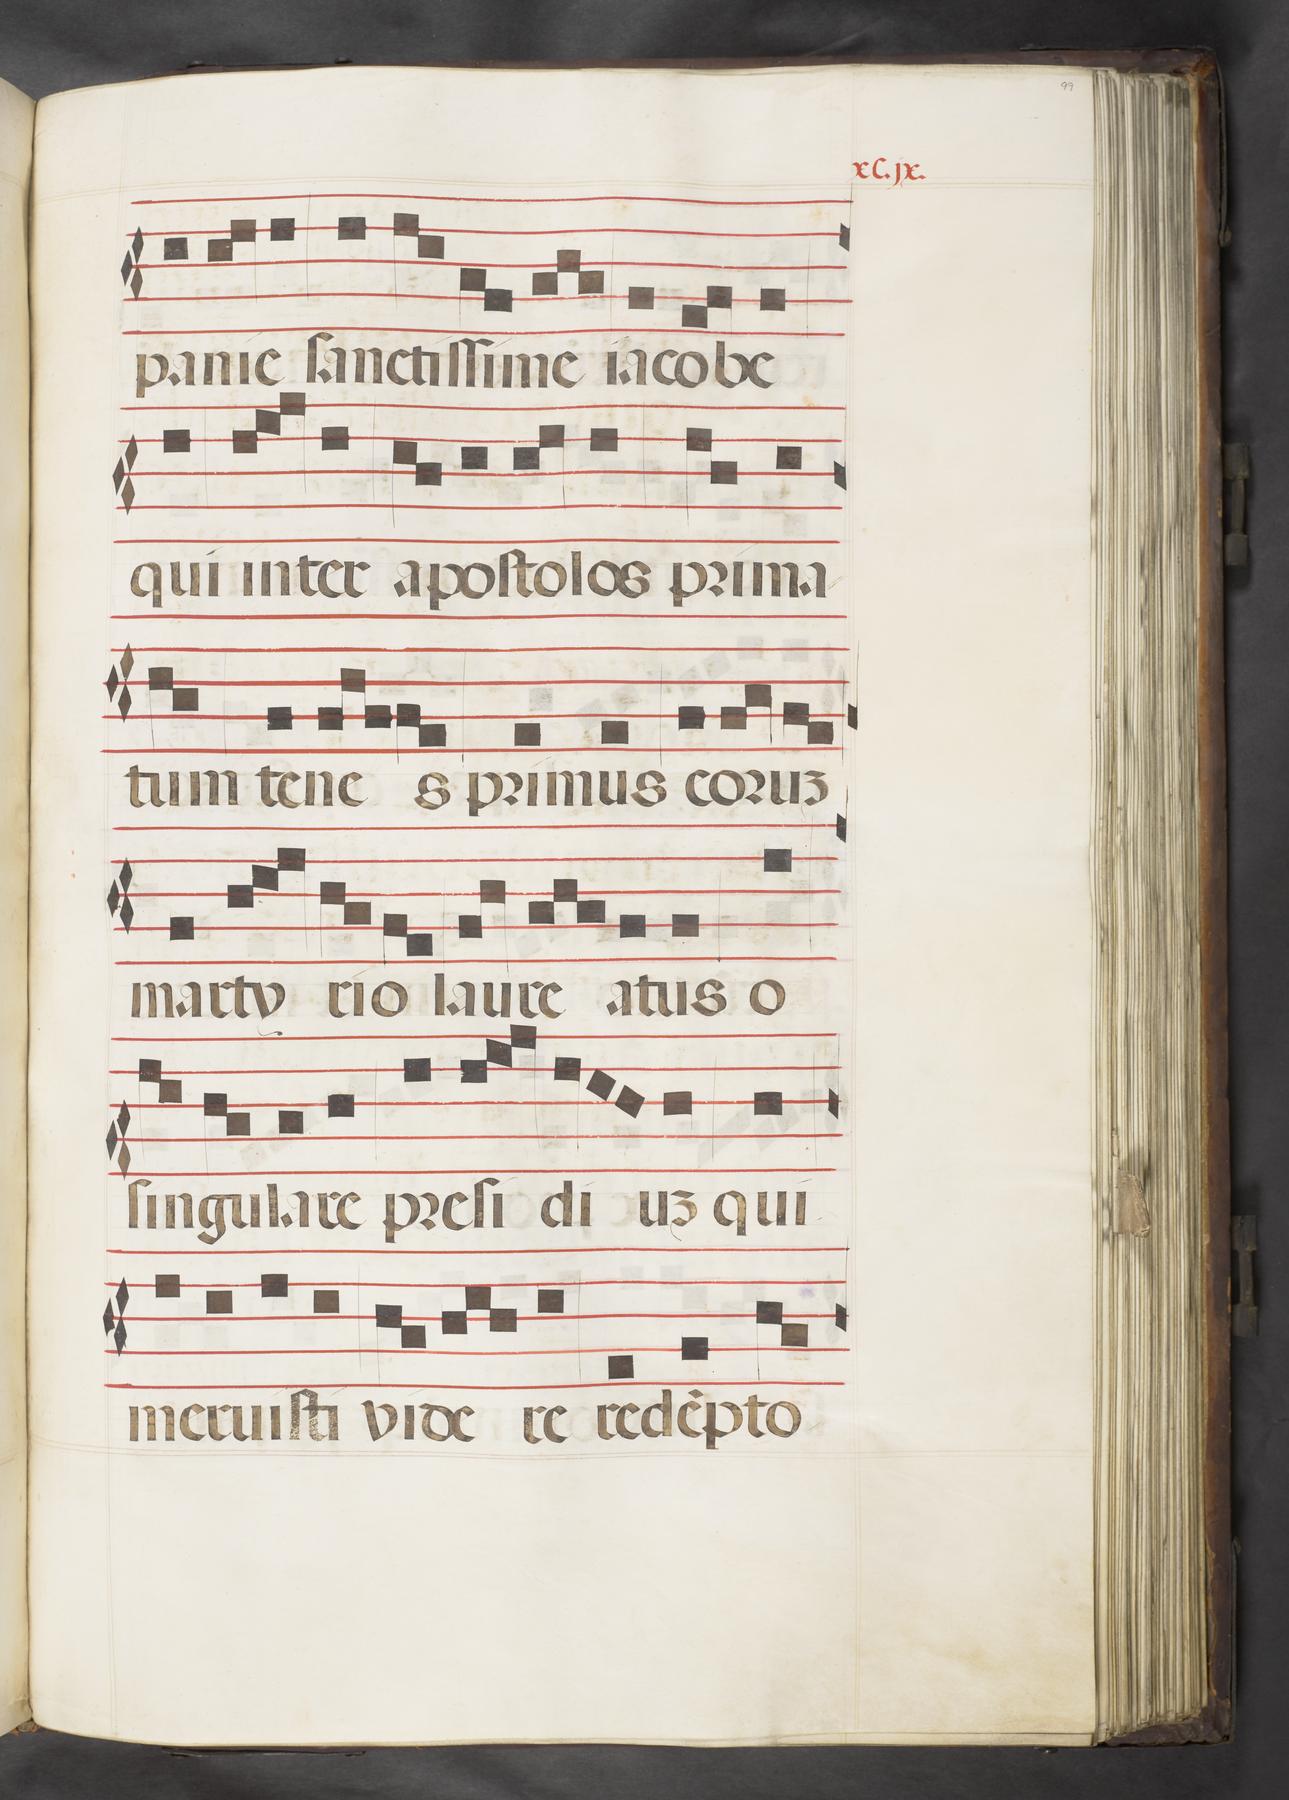 99
xc.jx.
panie sanctissime iacobe
qui inter apostolos prima
tum tene s primus eoruʒ
marty rio laure atus o
singulare presi di uʒ qui
meruisti vide re redēpto